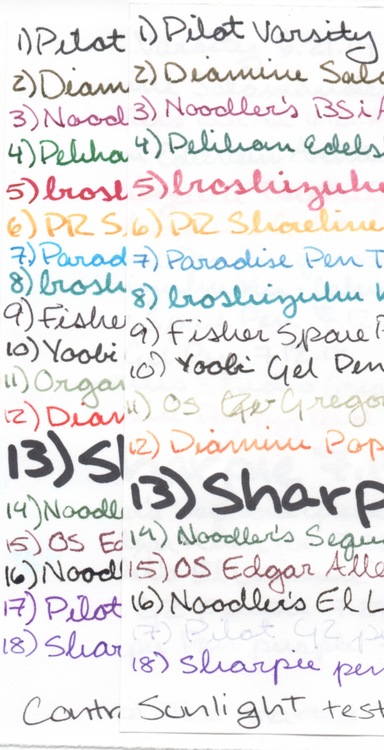 1) Pilot
2) Diam
3) Nood
4) Pelika
5) Irosh
6) PR S
7) Parad
8) Irosh
9) Fishe
10) Yoobi
11) Organ
12) Diam
13) Sh
14) Noodl
15) OS Ed
16) Noodl
17) Pilot
18) Shar
Contr
1) Pilot Varsity
2) Diamine Sal
3) Noodler's BSiA
4) Pelikan Edels
5) Iroshizuku
6) PR Shoreline
7) Paradise Pen T
8) Iroshizuku K
9) Fisher Space P
10) Yoobi Gel Pen
11) OS Gregor
12) Diamine Pop
13) Sharp
14) Noodler's Sequ
15) OS Edgar Alle
16) Noodler's El L
17) Pilot G2 pu
18) Sharpie pen
Sunlight test